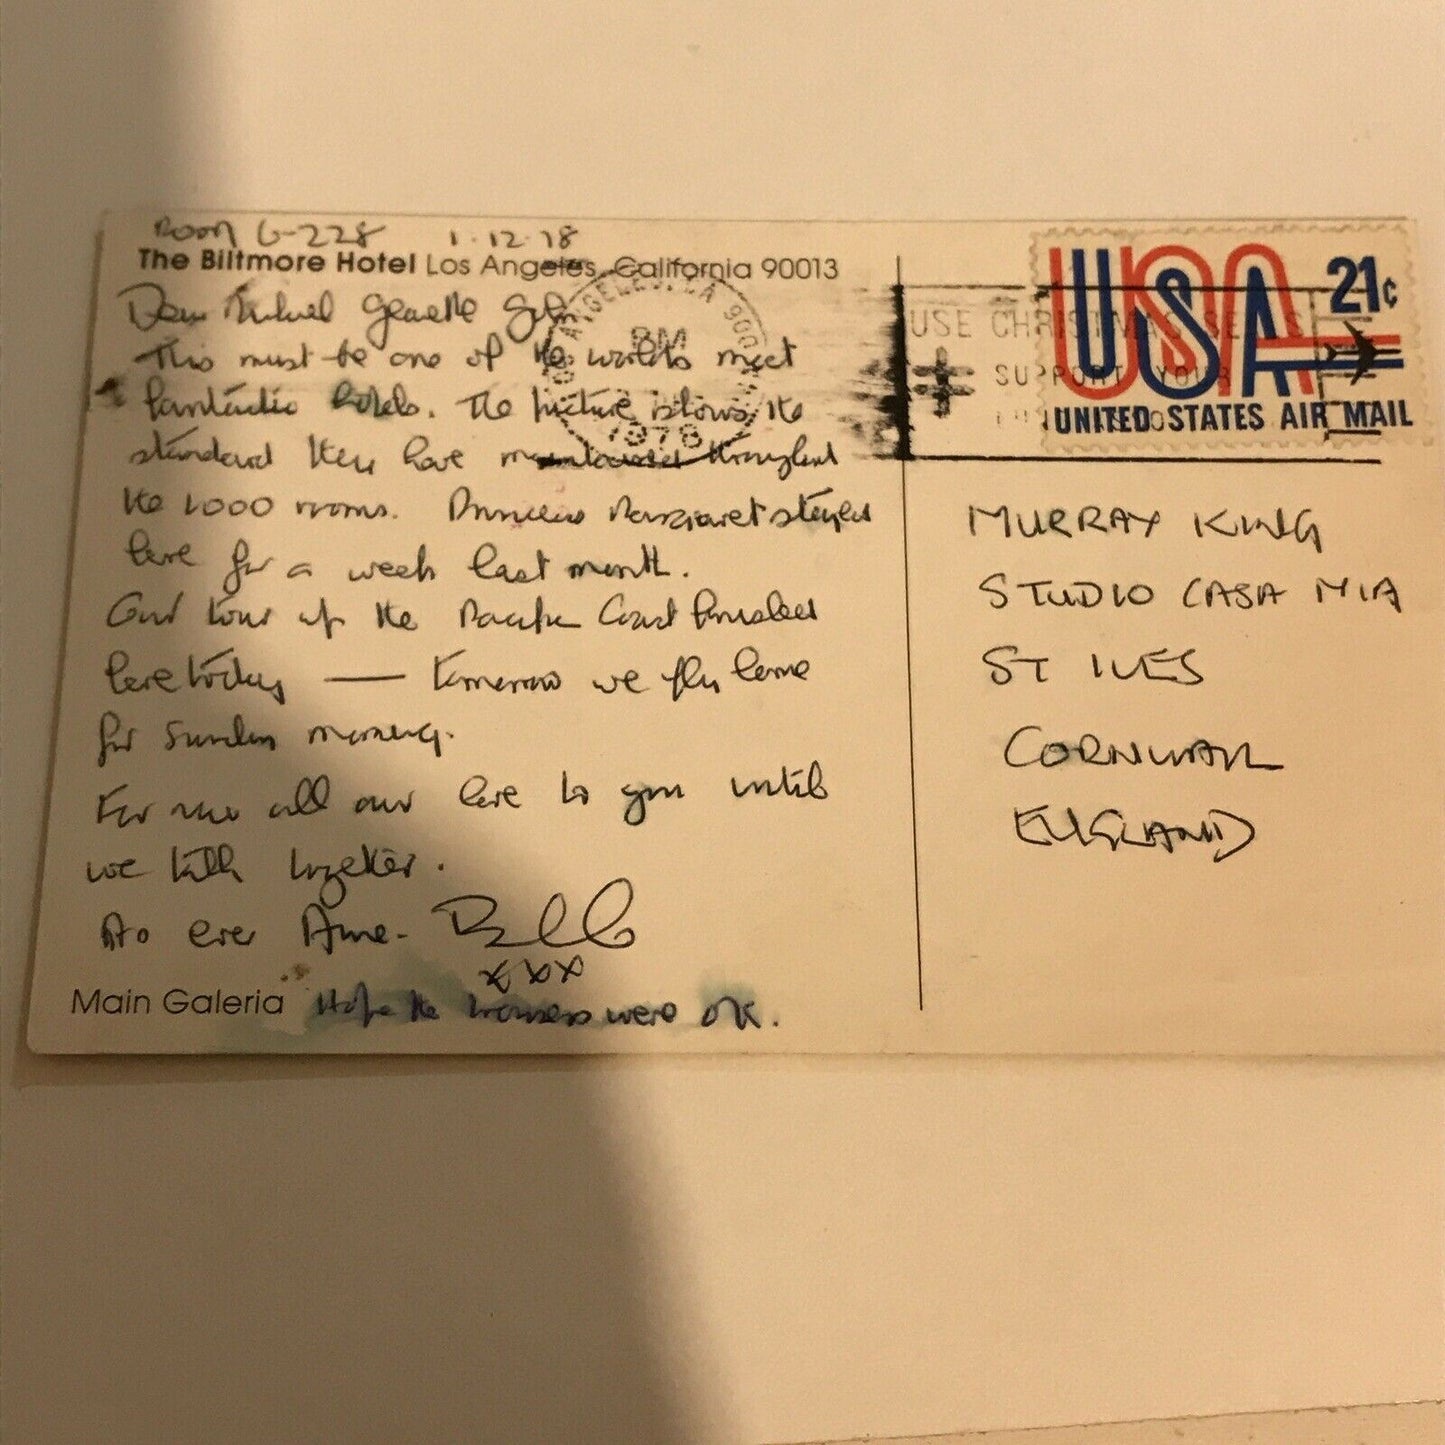 Room G-228 1.12.78
The Biltmore Hotel Los Angeles, California 90013
Dear
This must be one of the worlds most
fantastic hotels. The picture shows the
standard they have maintained throughout
the 1000 rooms. Princess Margaret stayed
here for a week last month.
Our tour of the Pacific Coast finished
here today — tomorrow we fly home
for Sunday morning.
For now all our love to you until
we talk together.
As ever
xxx
Main Galeria Hope the trousers were OK.
LOS ANGELES, CA 900
PM
1978
USE CHRISTMAS SEALS
SUPPORT YOUR
USA 21c
UNITED STATES AIR MAIL
MURRAY KING
STUDIO CASA MIA
ST IVES
CORNWALL
ENGLAND